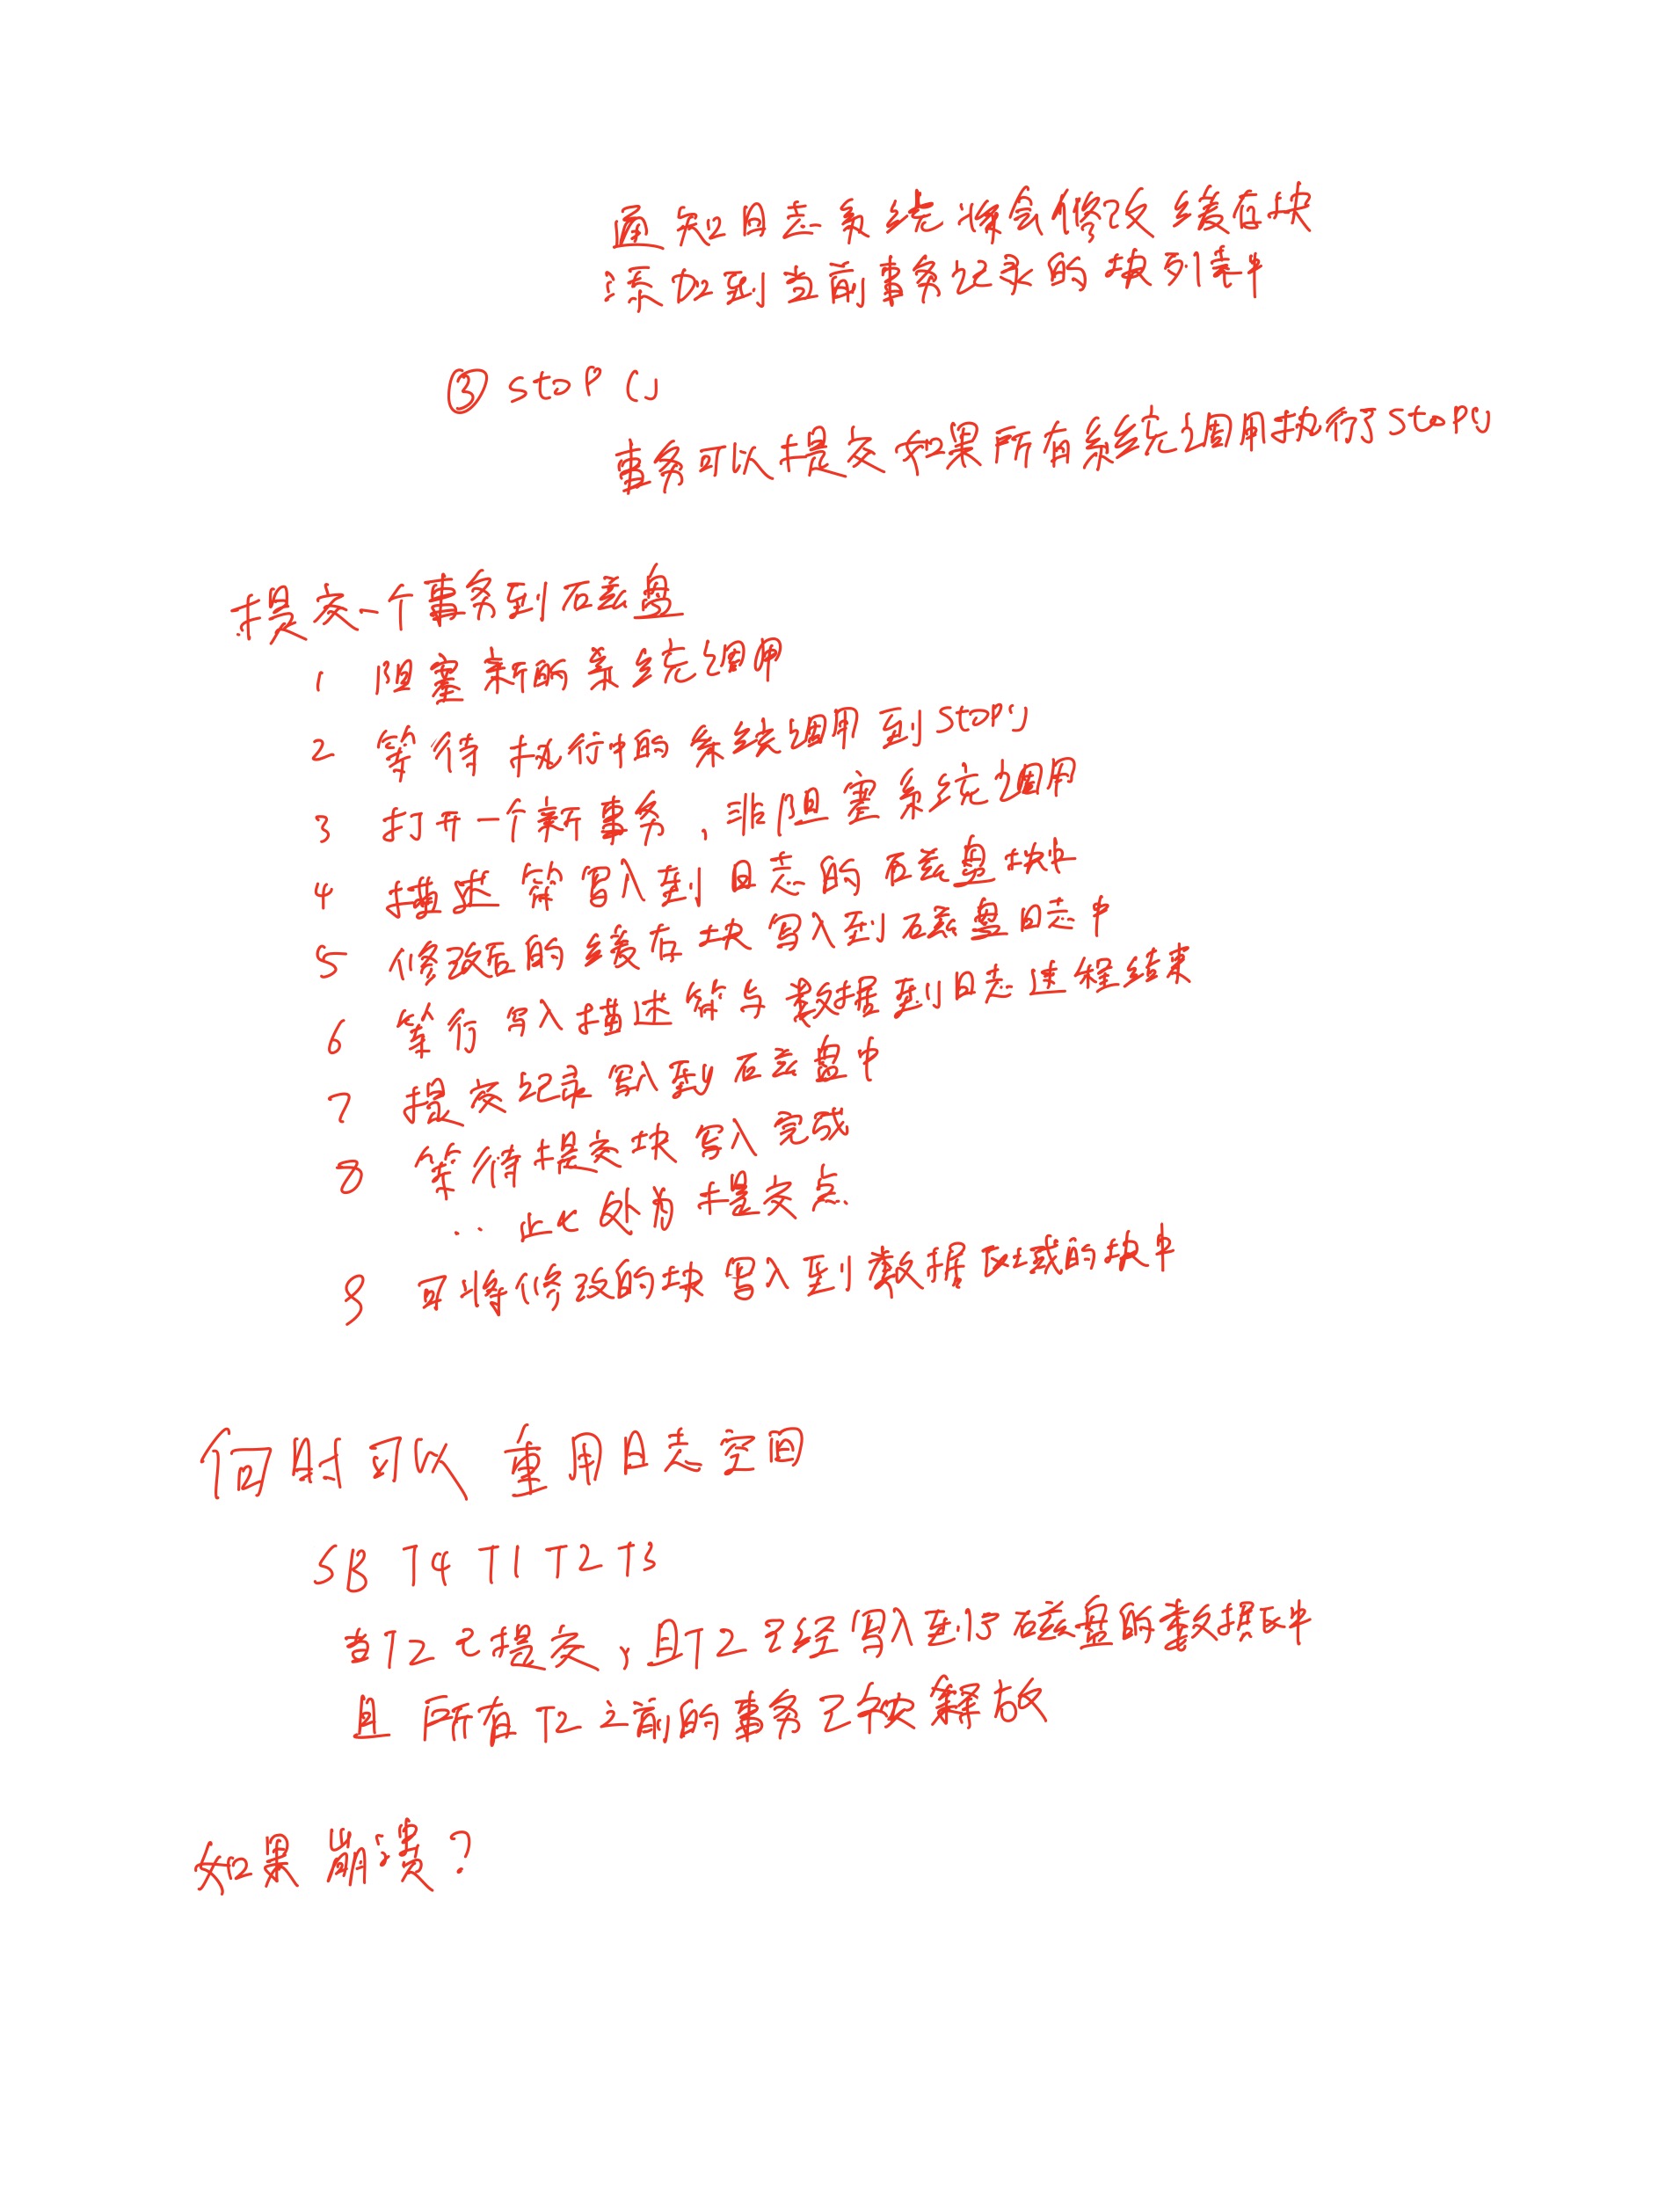 通知日志系统将会修改缓存块
添加到当前事务记录的块列表中
③ stop()
事务可以提交如果所有系统调用执行了stop()
提交一个事务到磁盘
1 阻塞新的系统调用
2 等待执行中的系统调用到stop()
3 打开一个新事务,非阻塞系统调用
4 描述符写入到日志的磁盘块中
5 修改后的缓存块写入到磁盘日志中
6 等行写入描述符与数据到日志进程结束
7 提交记录写入到磁盘中
8 等待提交块写入完成
.. 此处为提交点.
9 可将修改的块写入到数据区域的块中
何时可以重用日志空间
SB T4 T1 T2 T3
当T2已提交,且T2已经写入到了磁盘的数据区中
且所有T2之前的事务已被释放
如果崩溃?